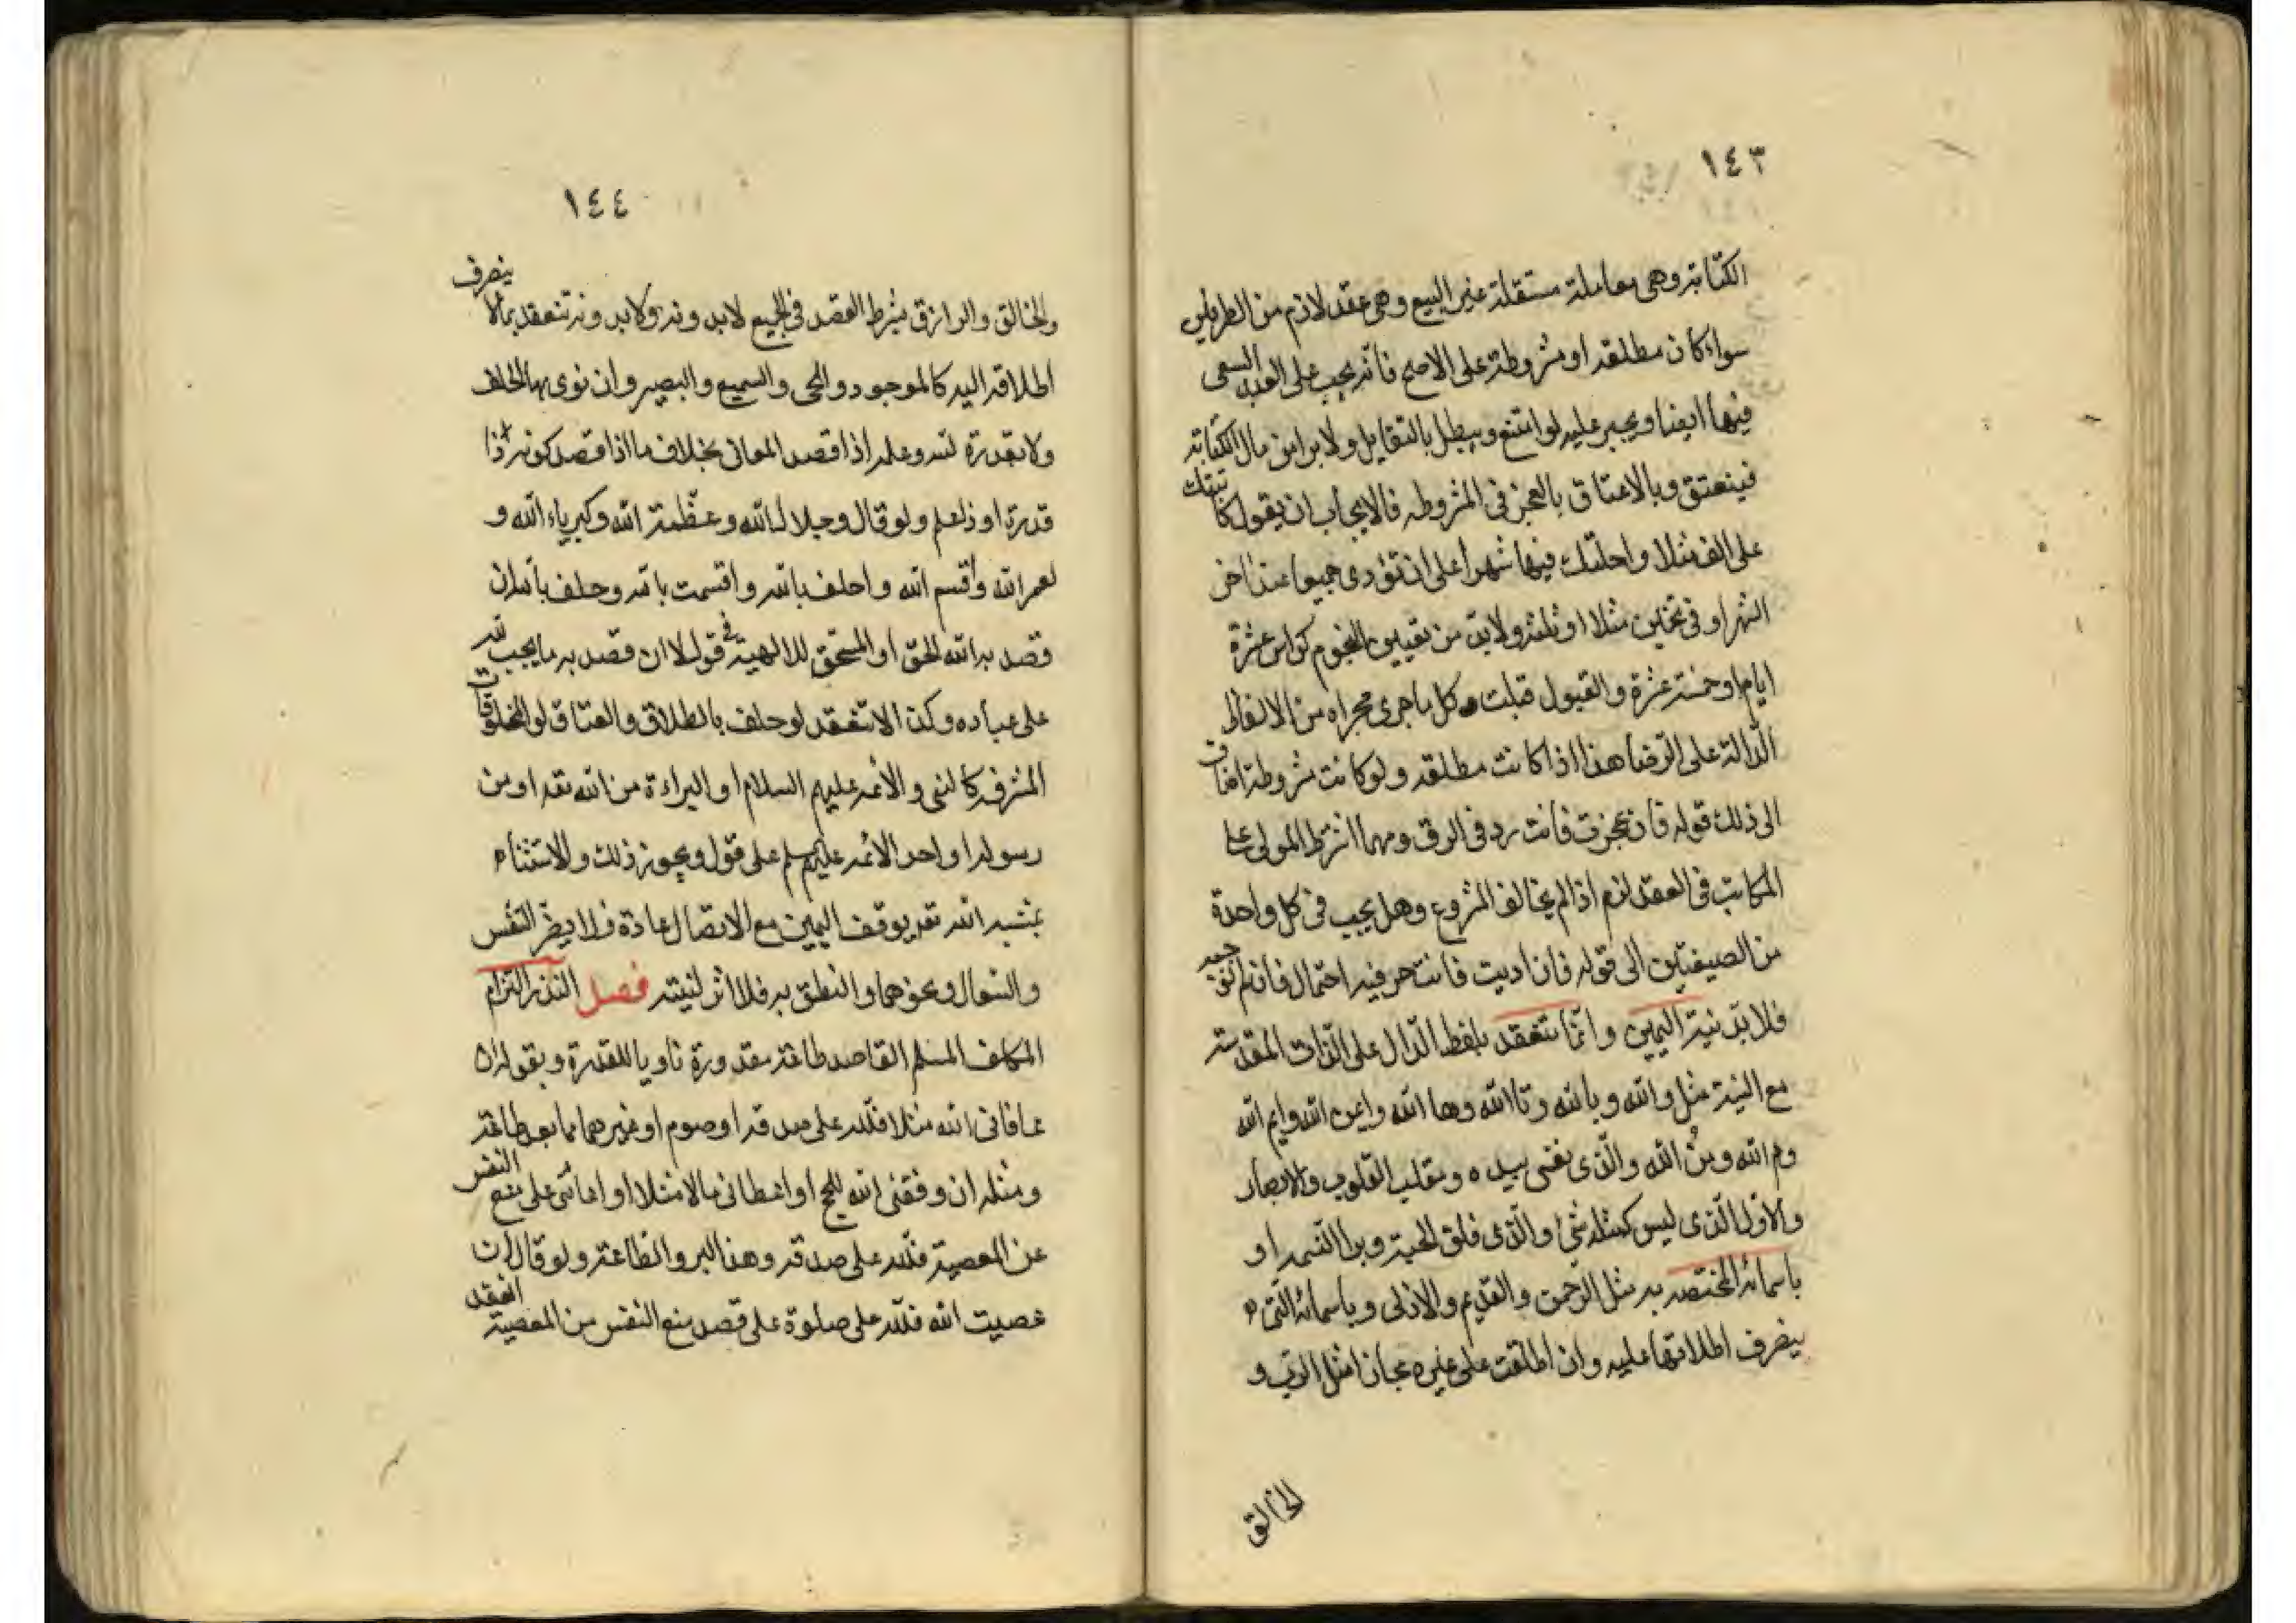 ١٤٣
الكتابة وهى معاملة مستقلة غير البيع وهى عقد لازم من الطرفين
سواء كان مطلقه او مشروطة على الاصح فانه يجب على العبد السعى
فيها ايضا ويجبر عليه لو امتنع ويبطل بالتقايل ولابراء من مال الكتابه
فينعتق وبالاعتاق بالعجز فى المشروطه فالايجاب ان يقول كاتبتك
على الف مثلا واجلتك فيها شهرا على ان تؤدى جميعا عند اخر
الشهر او فى نجمين مثلا او ثلثه ولابد من تعيين النجوم كراس عشرة
ايام او خمسة عشرة والقبول قبلت وكل ما جرى مجراه من الالفاظ
الدالة على الرضا هذا اذا كانت مطلقه ولو كانت مشروطة اضاف
الى ذلك قوله فان عجزت فانت رد فى الرق ومهما اشترط المولى على
المكاتب فى العقد لزم اذا لم يخالف المشروع وهل يجب فى كل واحدة
من الصيغتين الى قوله فان اديت فانت حر فيه احتمال فان لم نوجبه
فلابد نية اليمين وانما تنعقد بلفظ الدال على الذات المقدسة
مع النية مثل والله وبالله وتاالله وها الله وايمن الله وايم الله
وم الله ومن الله والذى نفسى بيده ومقلب القلوب والابصار
والاول الذى ليس كمثله شئ والذى فلق الحبة وبرا النسمه او
باسمائه المختصه به مثل الرحمن والقديم والازلى وباسمائه التى
ينصرف اطلاقها عليه وان اطلقت على غيره مجازا مثل الرب و
الخالق
١٤٤
والخالق والرازق بشرط القصد فى الجميع لابدونه ولابدونه تنعقد بما لا ينصرف
اطلاقه اليه كالموجود والحى والسميع والبصير وان نوى بها الحلف
ولا بقدرة الله وعلمه اذا قصد المعانى بخلاف ما اذا قصد كونه ذا
قدرة او ذا علم ولو قال وجلال الله وعظمة الله وكبرياء الله و
لعمر الله واقسم الله واحلف بالله واقسمت بالله وحلف بالله ان
قصد به الله الحق او المستحق للالهية فى قول لا ان قصد به ما يجب لله
على عباده وكذا لا تنعقد لو حلف بالطلاق والعتاق لو المخلوقات
المشرفه كالنبى والائمه عليهم السلام او البراءة من الله تعه او من
رسوله او احد الائمه عليهم على قول ويجوز ذلك والاستثناء
بمشيه الله تعه يوقف اليمين مع الاتصال عادة فلا يضر التنفس
والسعال ونحوهما والنطق به فلا اثر لنيته فصل النذر التزام
المكلف المسلم القاصد طاعة مقدورة ناويا للقدرة وبقوله ان
عافانى الله مثلا فلله على صدقه او صوم او غيرهما مما يعد طاعة
ومثله ان وفقنى الله للحج او اعطانى مالا مثلا او اعاننى على منع النفس
عن المعصية فلله على صدقه وهذا البر والطاعة ولو قال ان
عصيت الله فلله على صلوة على قصد منع النفس من المعصية انعقد